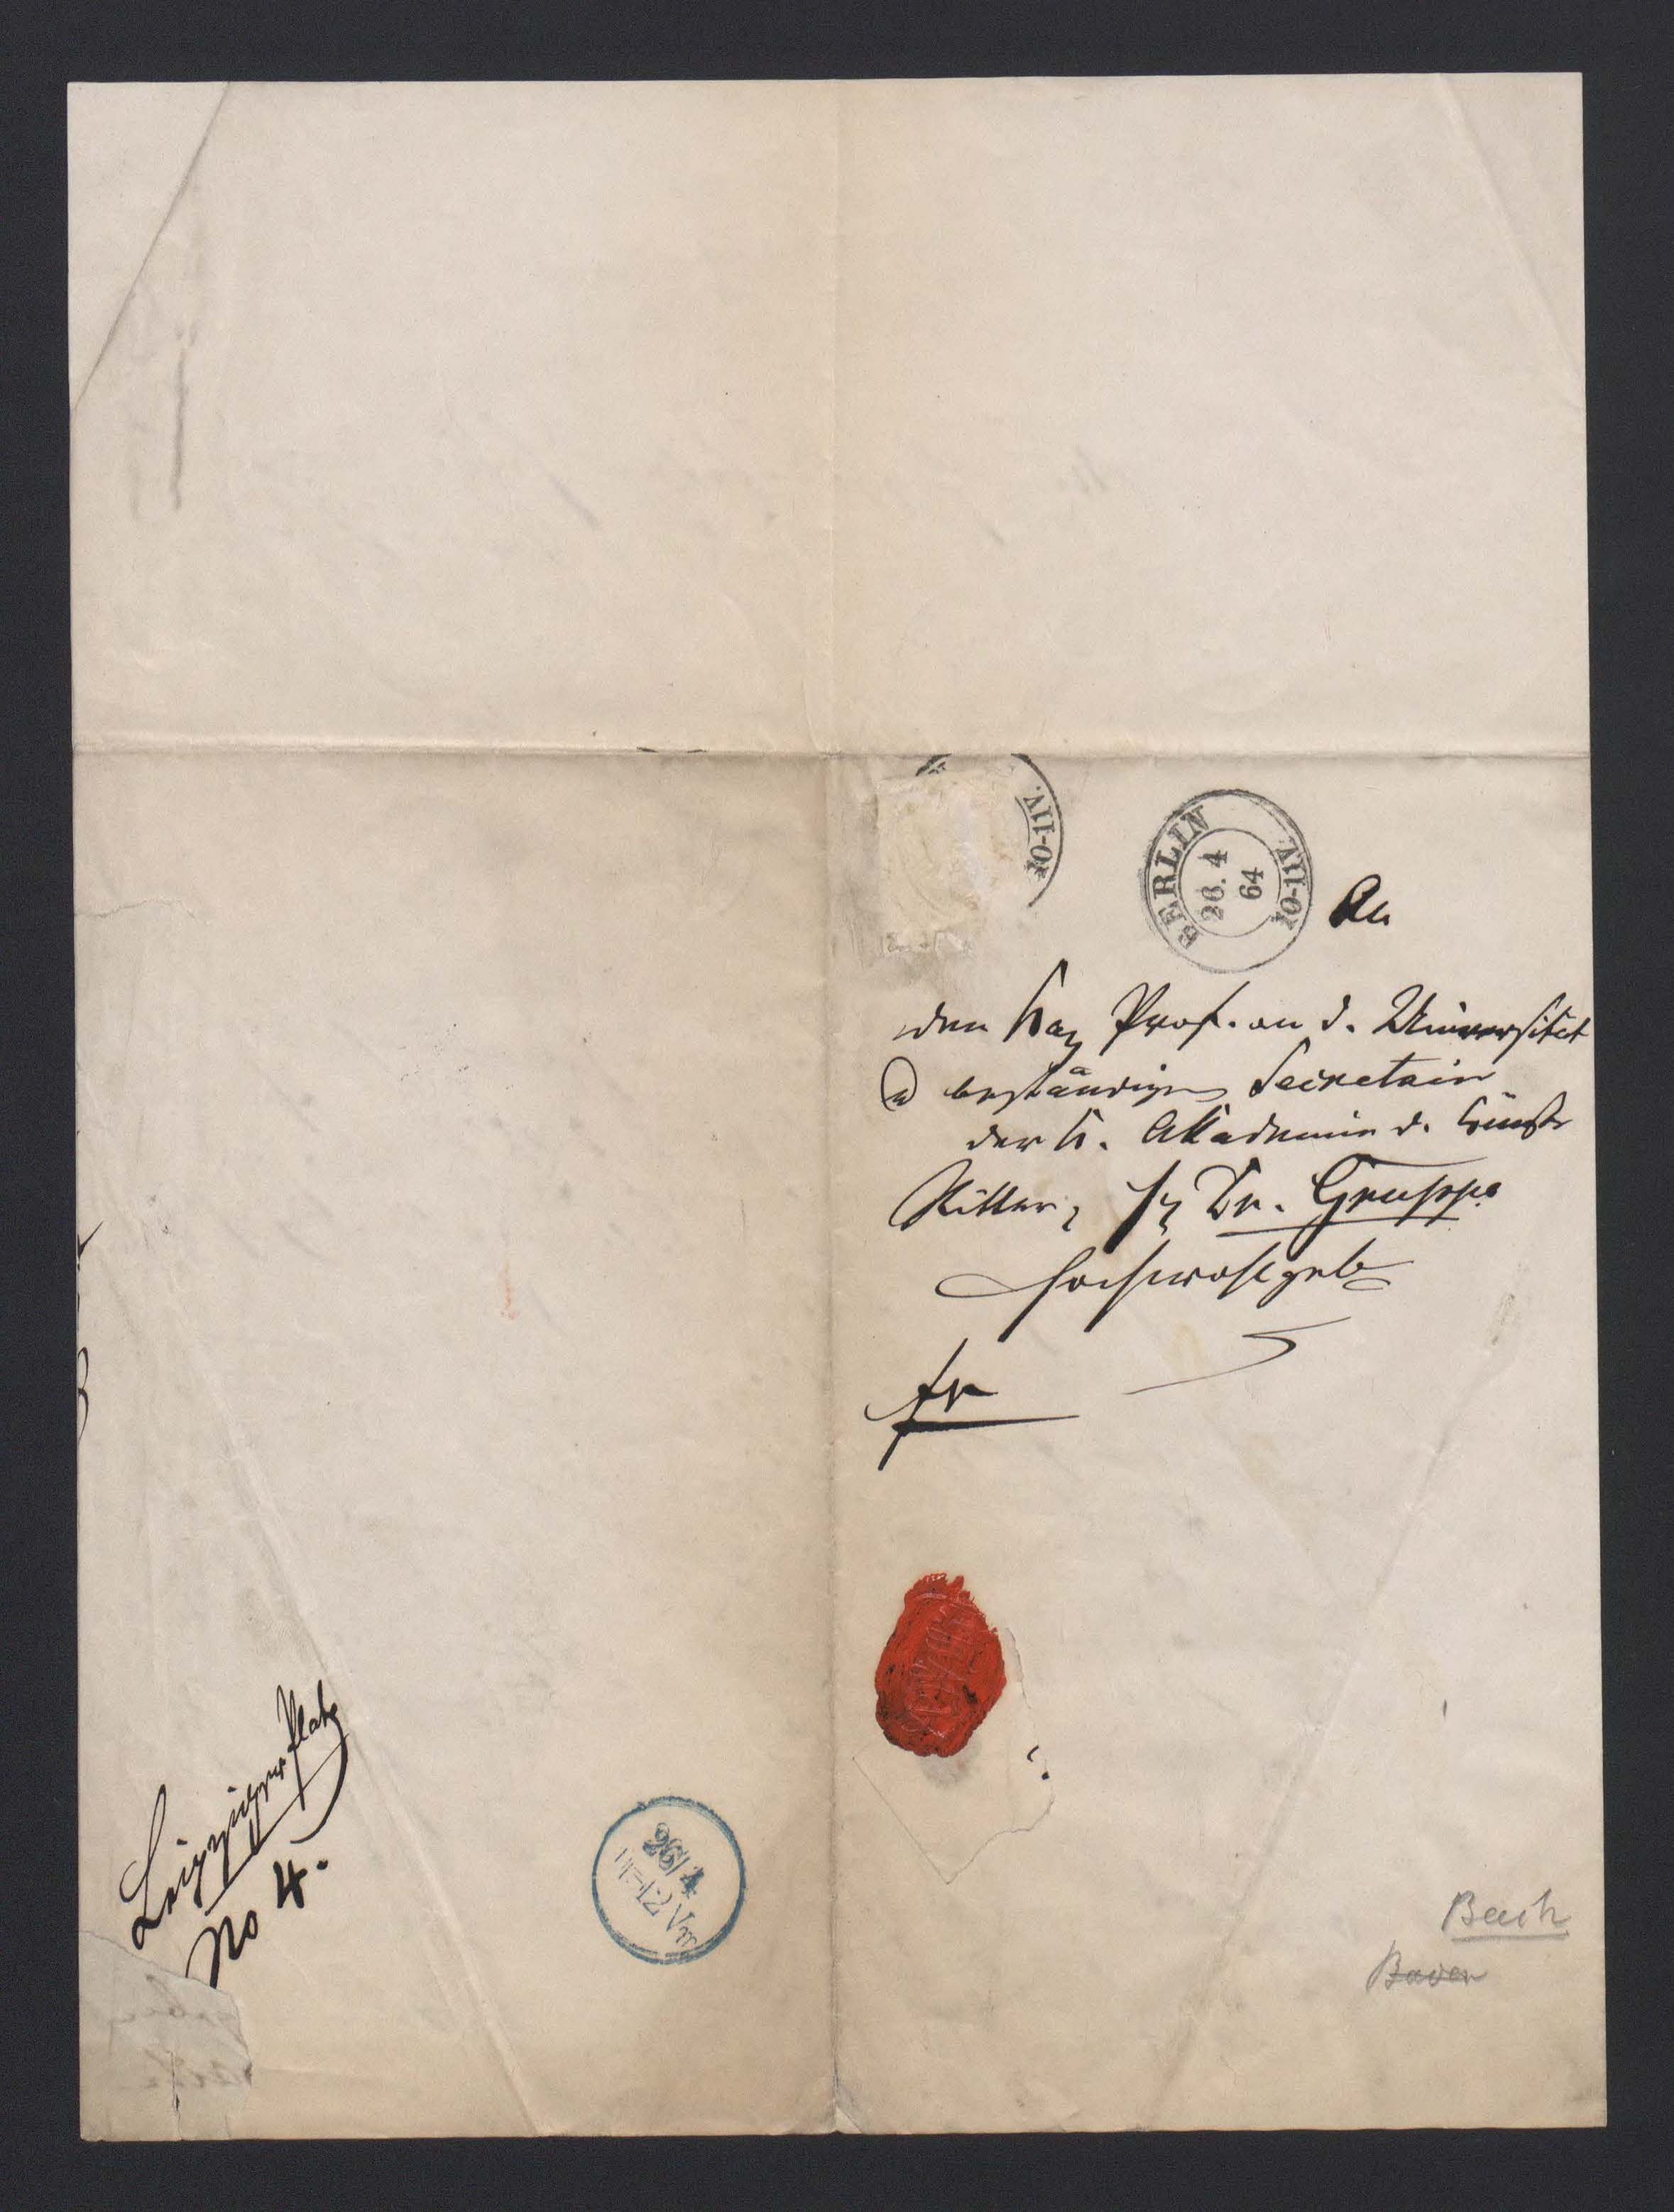 10-11V.
BERLIN
26. 4
64
10-11V.
An
den Prof. an d. Universität
u beständigen Secretair
der K. Akademie d. Künste
Ritter, Dr. Gruppe
Hochwohlgeb
fr
Leipziger Platz
No 4.
26/4
11-12 Vm
Bach
Bauer